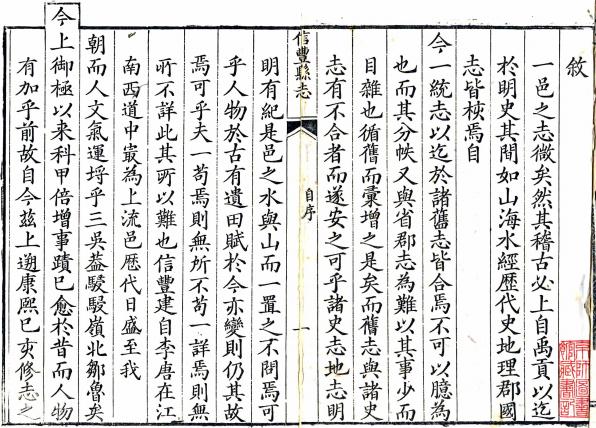 敘
一邑之志微矣然其稽古必上自禹貢以迄
於明史其間如山海水經歷代史地理郡國
志皆梜焉自
今一統志以迄於諸舊志皆合焉不可以臆為
也而其分帙又與省郡志為難以其事少而
目雜也循舊而彙增之是矣而舊志與諸史
志有不合者而遂安之可乎諸史志地志明
信豐縣志
自序
一
明有紀是邑之水與山而一置之不問焉可
乎人物於古有遺田賦於今亦變則仍其故
焉可乎夫一苟焉則無所不苟一詳焉則無
所不詳此其所以難也信豐建自李唐在江
南西道中㝡為上流邑歷代日盛至我
朝而人文氣運埒乎三吳葢駸駸嶺北鄒魯矣
今上御極以来科甲倍增事蹟已愈於昔而人物
有加乎前故自今茲上遡康熙己亥修志之